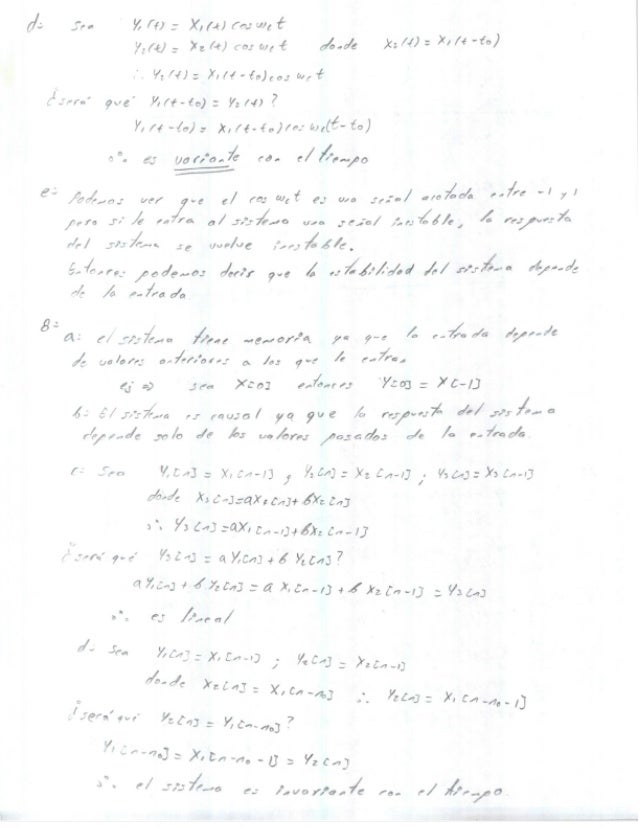 d: sea Y₁(t) = X₁(t) cos wct
Y₂(t) = X₂(t) cos wct donde X₂(t) = X₁(t-t₀)
∴ Y₂(t) = X₁(t-t₀)cos wct
¿será que Y₁(t-t₀) = Y₂(t)?
Y₁(t-t₀) = X₁(t-t₀)cos wc(t-t₀)
∴ es variante con el tiempo
e: Podemos ver que el cos wct es una señal acotada entre -1 y 1
pero si le entra al sistema una señal inestable, la respuesta
del sistema se vuelve inestable.
Entonces podemos decir que la estabilidad del sistema depende
de la entrada
8: a: el sistema tiene memoria ya que la entrada depende
de valores anteriores a los que le entran
ej ⇒ sea X[0] entonces Y[0] = X[-1]
b: El sistema es causal ya que la respuesta del sistema
depende solo de los valores pasados de la entrada.
c: Sea Y₁[n] = X₁[n-1] y Y₂[n] = X₂[n-1] ; Y₃[n] = X₃[n-1]
donde X₃[n]=aX₁[n]+bX₂[n]
∴ Y₃[n]=aX₁[n-1]+bX₂[n-1]
¿será que Y₃[n] = aY₁[n] + bY₂[n]?
aY₁[n] + bY₂[n] = aX₁[n-1] + bX₂[n-1] = Y₃[n]
∴ es lineal
d: Sea Y₁[n] = X₁[n-1] ; Y₂[n] = X₂[n-1]
donde X₂[n] = X₁[n-n₀] ∴ Y₂[n] = X₁[n-n₀-1]
¿será qué Y₂[n] = Y₁[n-n₀]?
Y₁[n-n₀] = X₁[n-n₀-1] = Y₂[n]
∴ el sistema es invariante con el tiempo.